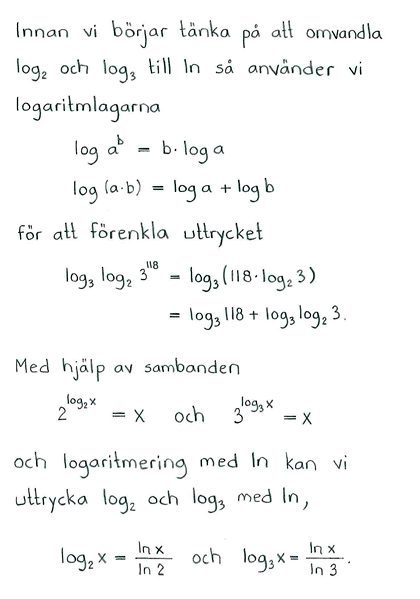 Innan vi börjar tänka på att omvandla
log₂ och log₃ till ln så använder vi
logaritmlagarna
log aᵇ = b·log a
log (a·b) = log a + log b
för att förenkla uttrycket
log₃ log₂ 3¹¹⁸ = log₃(118·log₂ 3)
= log₃ 118 + log₃ log₂ 3.
Med hjälp av sambanden
2^(log₂ x) = x och 3^(log₃ x) = x
och logaritmering med ln kan vi
uttrycka log₂ och log₃ med ln,
log₂ x = ln x / ln 2 och log₃ x = ln x / ln 3.